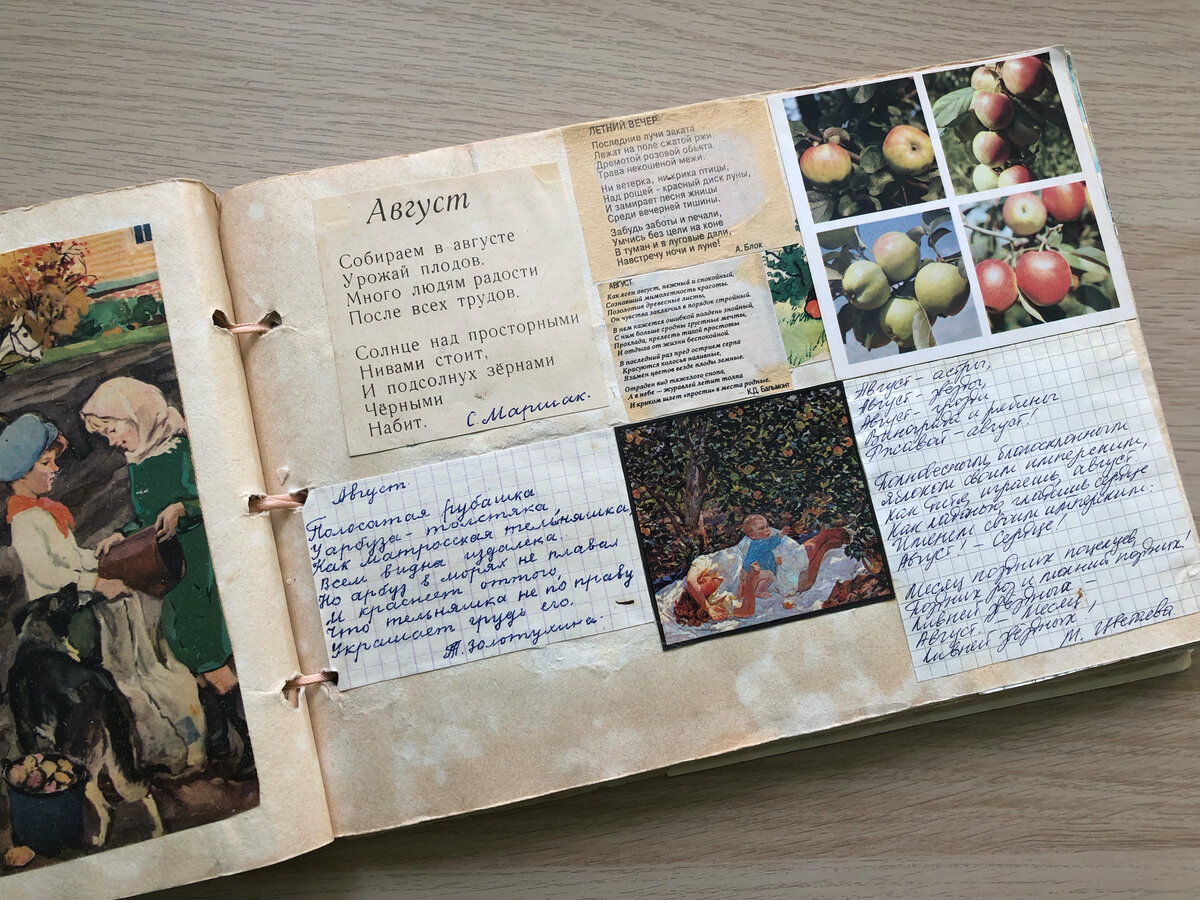 Август
Собираем в августе
Урожай плодов.
Много людям радости
После всех трудов.
Солнце над просторными
Нивами стоит,
И подсолнух зёрнами
Чёрными
Набит.
С. Маршак.
ЛЕТНИЙ ВЕЧЕР
Последние лучи заката
Лежат на поле сжатой ржи.
Дремотой розовой объята
Трава некошеной межи.
Ни ветерка, ни крика птицы,
Над рощей - красный диск луны,
И замирает песня жницы
Среди вечерней тишины.
Забудь заботы и печали,
Умчись без цели на коне
В туман и в луговые дали,
Навстречу ночи и луне!
А. Блок
АВГУСТ
Как ясен август, нежный и спокойный,
Сознавший мимолетность красоты.
Позолотив древесные листы,
Он чувства заключил в порядок стройный.
В нем кажется ошибкой полдень знойный,
С ним больше сродны грустные мечты,
Прохлада, прелесть тихой простоты
И отдыха от жизни беспокойной.
В последний раз пред острием серпа
Красуются колосья наливные,
Взамен цветов везде плоды земные.
Отраден вид тяжелого снопа,
А в небе – журавлей летит толпа
И криком шлет «прости» в места родные.
К.Д. Бальмонт
Август
Полосатая рубашка
У арбуза – толстяка,
Как матросская тельняшка
Всем видна издалека.
Но арбуз в морях не плавал
И краснеет оттого,
Что тельняшка не по праву
Украшает грудь его.
Т. Золотухина.
Август – астры,
Август – звёзды,
Август – грозди
Винограда и рябины
Ржавой – август!
Полновесным, благосклонным
Яблоком своим имперским,
Как дитя, играешь, август,
Как ладонью, гладишь сердце
Именем своим имперским:
Август! – Сердце!
Месяц поздних поцелуев,
Поздних роз и молний поздних!
Ливней звёздных –
Август! – Месяц
Ливней звёздных!
М. Цветаева